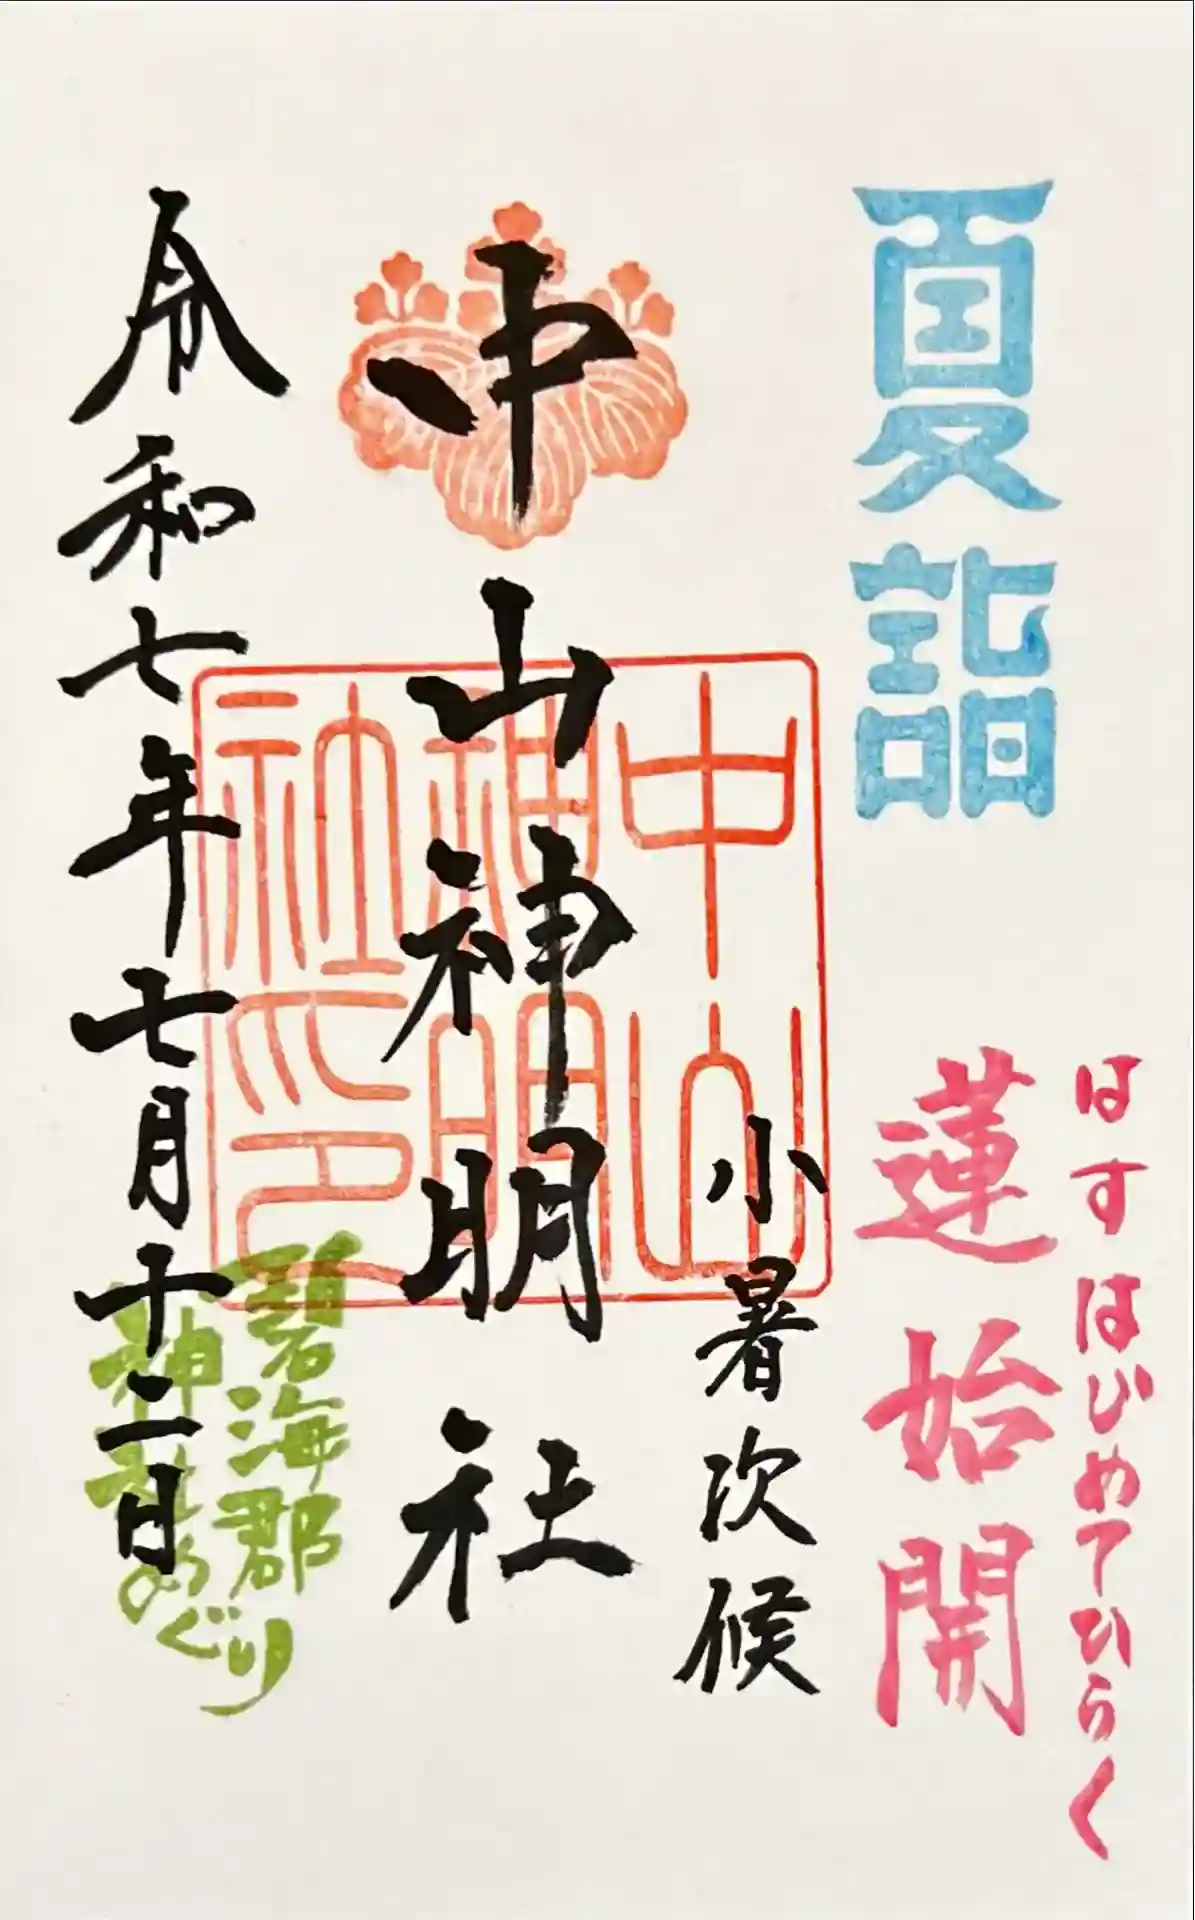 夏詣
はす はじめてひらく
蓮始開
小暑次候
中山神明社
中山
神明
社印
碧海郡
神社めぐり
令和七年七月十二日